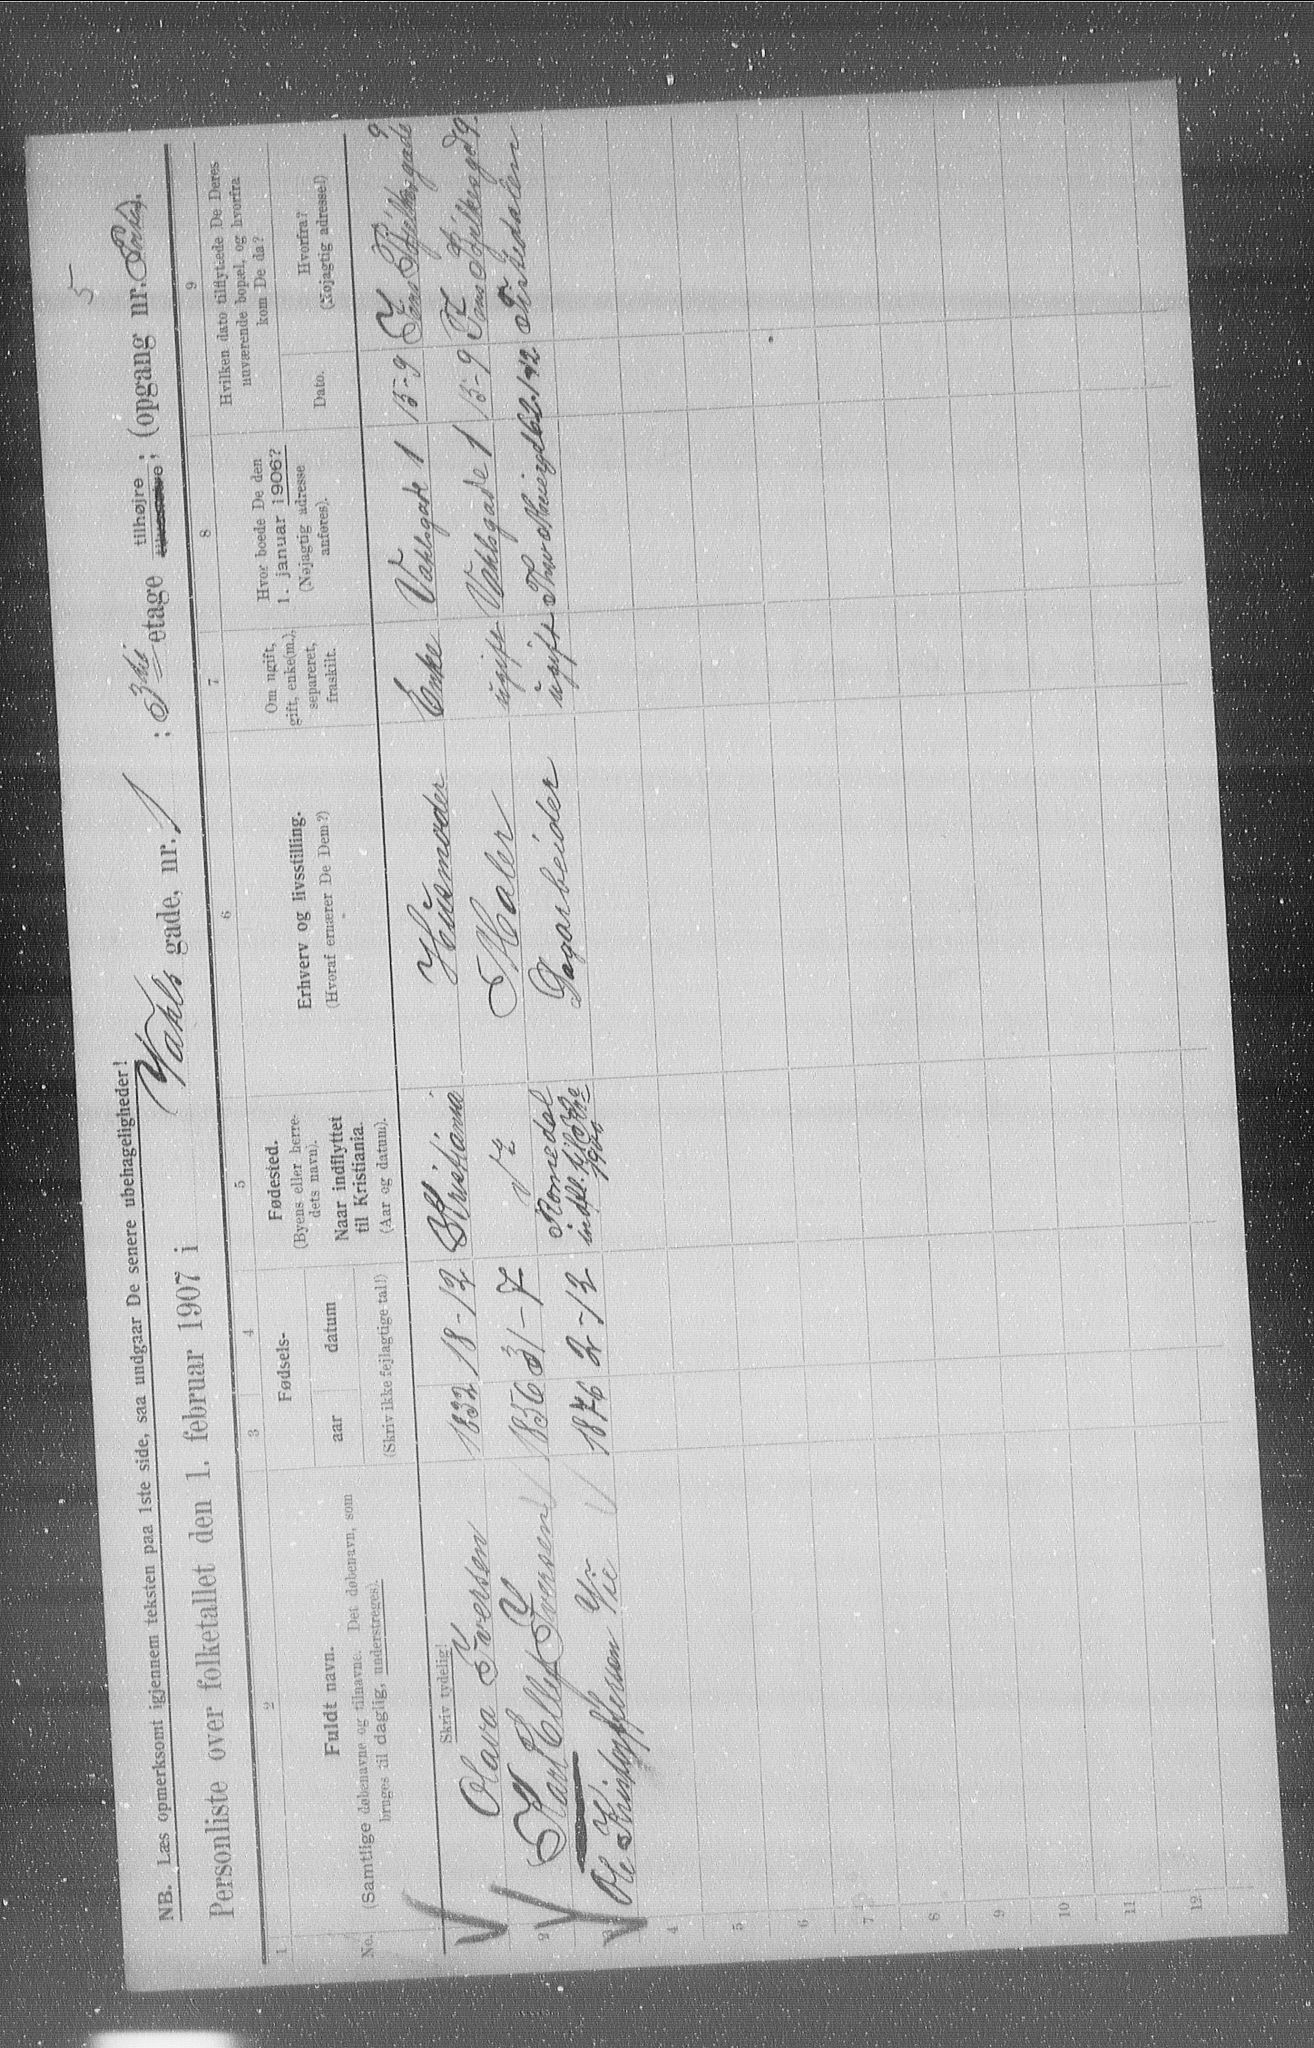 5
NB. Læs opmerksomt igjennem teksten paa 1ste side, saa undgaar De senere ubehageligheder!
Personliste over folketallet den 1. februar 1907 i Vahls gade, nr. 1 : 3die etage tilhøjre ; (opgang nr. ).
1 2 3 4 5 6 7 8 9
No.
Fuldt navn.
(Samtlige døbenavne og tilnavne. Det døbenavn, som
bruges til daglig, understreges).
Skriv tydelig!
Fødsels-
aar datum
(Skriv ikke fejlagtige tal!)
Fødested.
(Byens eller herre-
dets navn).
Naar indflyttet
til Kristiania.
(Aar og datum).
Erhverv og livsstilling.
(Hvoraf ernærer De Dem?)
Om ugift,
gift, enke(m.),
separeret,
fraskilt.
Hvor boede De den
1. januar 1906?
(Nøjagtig adresse
anføres).
Hvilken dato tilflyttede De Deres
nuværende bopæl, og hvorfra
kom De da?
Dato.
Hvorfra?
(Nøjagtig adresse!)
Olava Iversen 1832 18-12 Kristiania Husmoder Enke Vahlsgade 1 15-9 Jens Bjelkesgade 9
2 Karl Ellef Iversen 1856 31-7 Maler ugift Vahlsgade 1 15-9 Jens Bjelkesgd 9.
Ole Kristoffersen 1876 2-12 Romedal Dagarbeider ugift
indfl. til
4
5
6
7
8
9
10
11
12